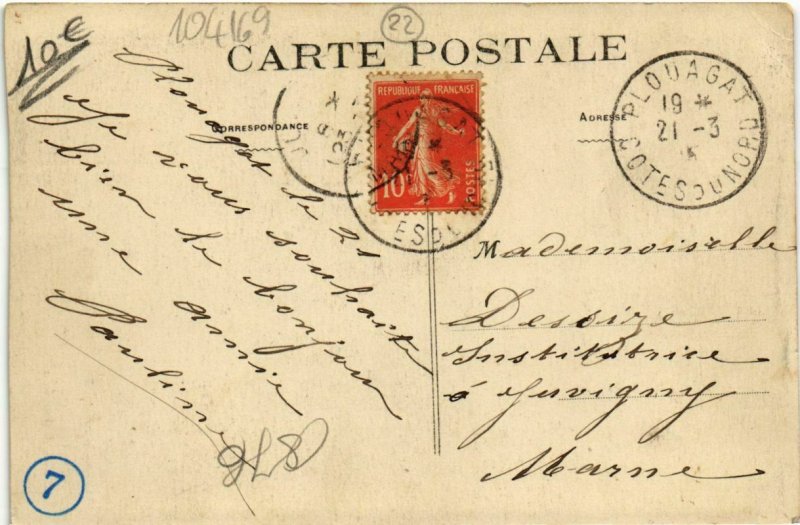 10€
104169
22
CARTE POSTALE
CORRESPONDANCE
ADRESSE
REPUBLIQUE FRANÇAISE
10
POSTES
PLOUAGAT
19 *
21 - 3
COTES DU NORD
Plouagat le 21
Je vous souhaite
bien le bonjour
une amie
Pauline
Mademoiselle
Desoize
Institutrice
à Juvigny
Marne
7